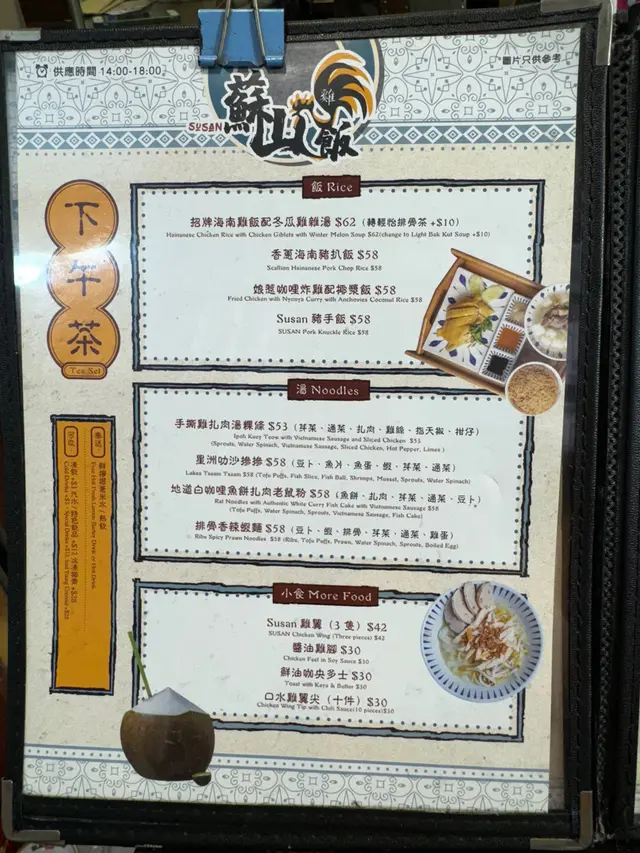 供應時間 14:00-18:00
*圖片只供參考
SUSAN
蘇山雞飯
下午茶
Tea Set
飯 Rice
招牌海南雞飯配冬瓜雞雜湯 $62 (轉輕怡排骨茶 +$10)
Hainanese Chicken Rice with Chicken Giblets with Winter Melon Soup $62(change to Light Bak Kut Soup +$10)
香蔥海南豬扒飯 $58
Scallion Hainanese Pork Chop Rice $58
娘惹咖哩炸雞配椰漿飯 $58
Fried Chicken with Nyonya Curry with Anchovies Coconut Rice $58
Susan 豬手飯 $58
SUSAN Pork Knuckle Rice $58
湯 Noodles
手撕雞扎肉湯粿條 $53 (芽菜、通菜、扎肉、雞絲、指天椒、柑仔)
Ipoh Kuey Teow with Vietnamese Sausage and Sliced Chicken $53
(Sprouts, Water Spinach, Vietnamese Sausage, Sliced Chicken, Hot Pepper, Limes )
星洲叻沙摻摻 $58 (豆卜、魚片、魚蛋、蝦、芽菜、通菜)
Laksa Tsaam Tsaam $58 (Tofu Puffs, Fish Slice, Fish Ball, Shrimps, Mussel, Sprouts, Water Spinach)
地道白咖哩魚餅扎肉老鼠粉 $58 (魚餅、扎肉、芽菜、通菜、豆卜)
Rat Noodles with Authentic White Curry Fish Cake with Vietnamese Sausage $58
(Tofu Puffs, Water Spinach, Sprouts, Vietnamese Sausage, Fish Cake)
排骨香辣蝦麵 $58 (豆卜、蝦、排骨、芽菜、通菜、雞蛋)
Ribs Spicy Prawn Noodles $58 (Ribs, Tofu Puffs, Prawn, Water Spinach, Sprouts, Boiled Egg)
小食 More Food
Susan 雞翼 (3 隻) $42
SUSAN Chicken Wing (Three pieces) $42
醬油雞腳 $30
Chicken Feet in Soy Sauce $30
鮮油咖央多士 $30
Toast with Kaya & Butter $30
口水雞翼尖 (十件) $30
Chicken Wing Tip with Chili Sauce(10 pieces)$30
鮮檸檬薏米水 / 熱飲
Free Hot Fresh Lemon Barley Drink or Hot Drink
凍飲 +$3 汽水 / 特色飲品 +$12